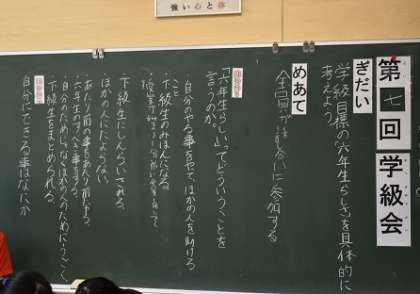 強い心と
第七回学級会
ぎだい
学級目標の「六年生らしさ」を具体的に
考えよう。
めあて
全員が話し合いに参加する
「六年生らしい」ってどういうことを
言うのか。
・自分のやる事をやって、ほかの人を助ける
こと
・下級生のみほんになる
・下級生にしんらいされる
ほかの人にたよらない
・あたり前の事をあたり前にする
・六年生のすべき事をする
・自分のためじゃなくほかの人のためにうごく
・下級生をまとめられる
自分にできる事はなにか